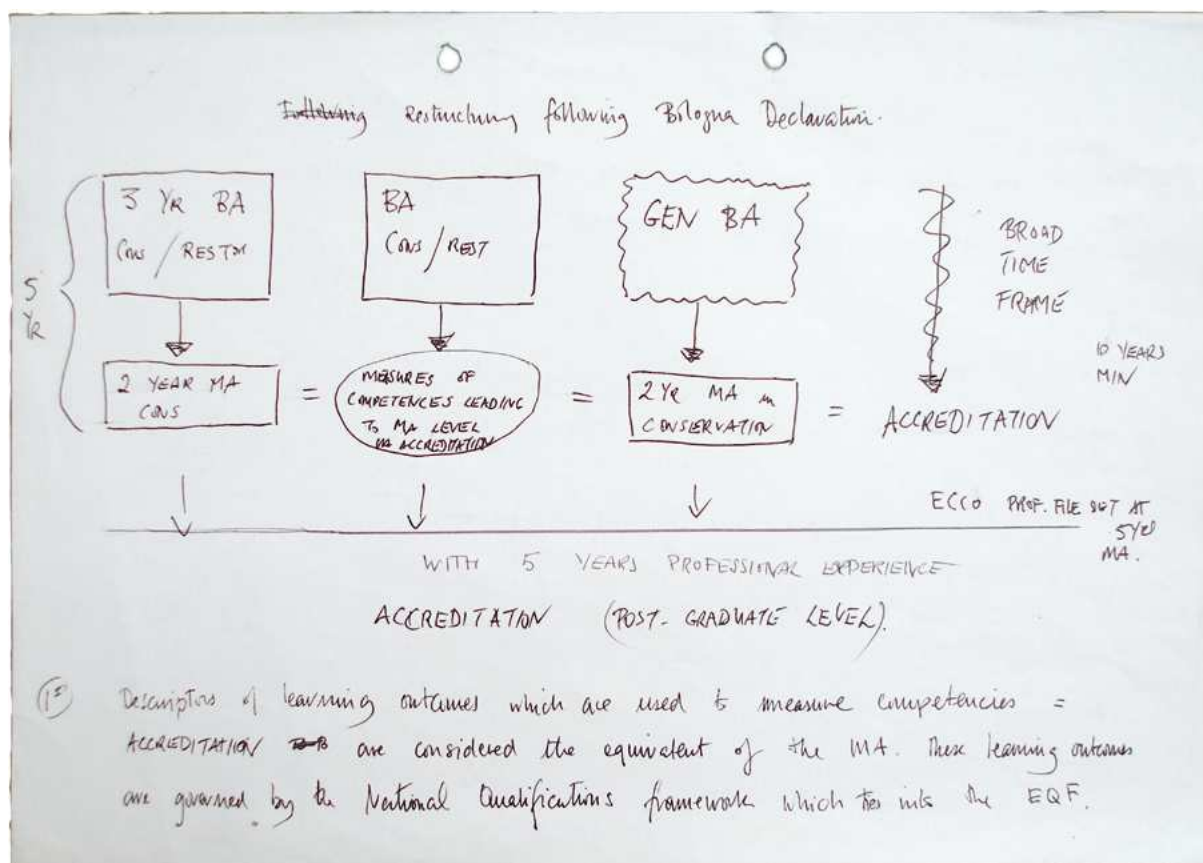 Restructuring following Bologna Declaration.
3 YR BA
CONS / RESTOR
BA
CONS / REST
GEN BA
BROAD
TIME
FRAME
5
YR
10 YEARS
MIN
2 YEAR MA
CONS
=
MEASURES OF
COMPETENCES LEADING
TO MA LEVEL
VIA ACCREDITATION
=
2 YR MA in
CONSERVATION
=
ACCREDITATION
ECCO PROF. FILE SET AT
5 YRS
MA.
WITH 5 YEARS PROFESSIONAL EXPERIENCE
ACCREDITATION (POST-GRADUATE LEVEL).
Descriptors of learning outcomes which are used to measure competencies =
ACCREDITATION are considered the equivalent of the MA. These learning outcomes
are governed by the National Qualifications framework which ties into the EQF.